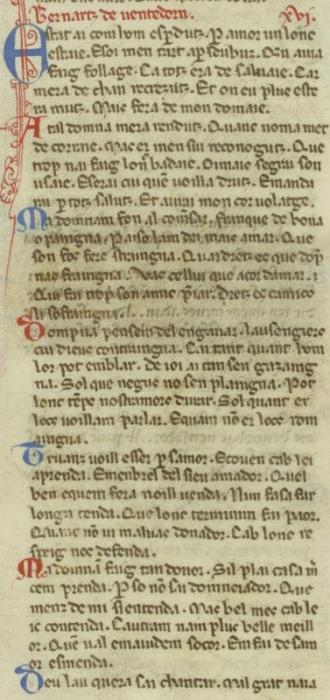 Bernartz de uentedorn. xvj.
Estat ai com hom esperdutz. Per amor un lonc
estaie. Esoi men tart aperseubuz. Qen auia
faiig follage. Ca totz era de saluaie. Car
mera de chan recrezutz. Et on eu plus este
ra mutz. Mais fera de mon dampnaie.
A tal domna mera rendutz. Quanc noma met
de corage. Mas er men sui reconogutz. Que
trop nai faig lonc badaie. Oimais segrai son
usaie. Eserai cui quem uoilla drutz. Emanda
rai per totz salutz. Et aurai mon cor uolatge.
Ma domnam fon al comsar. franque de bona
compaingna. Per aisso lam dei mais amar. Que
son fos fere straingna. Quar dreitz es que dop
nas fraingna. Vas cellui que acor damar.
Qui fai trop son amic preiar. Dreitz es camics
li sofraingna.
Dompna pensem del enganar. lausengiers
cui dieus contraingna. Ca tant quant hom
lor pot emblar. de ioi ai tan sen gazaing
na. Sol que negus no sen plaingna. Pot
lonc temps nostramors durar. Sol quant er
locs uoillam parlar. Equam non er locs rem
aingna.
Truans uoill esser per samor. Ecouen cab lei
aprenda. Emenbrel del sieu amador. Quel
ben equem fera noill uenda. Nim fasa far
longa tenda. Que lonc termunn fai paor.
Quanc no ui maluas donador. Cab lonc re
speig nos defenda.
Ma domna faug tan doner. Sil plai casa mer
cem prenda. Per so non sui domneiador. Que
menz de mi si entenda. Mas bel mes cab le
is contenda. Cautram nam plus belle meill
or. Quem ual emaiudem socor. Em fai de sam
or esmenda.
Deu lau quera sai chantar. Mal grat naia